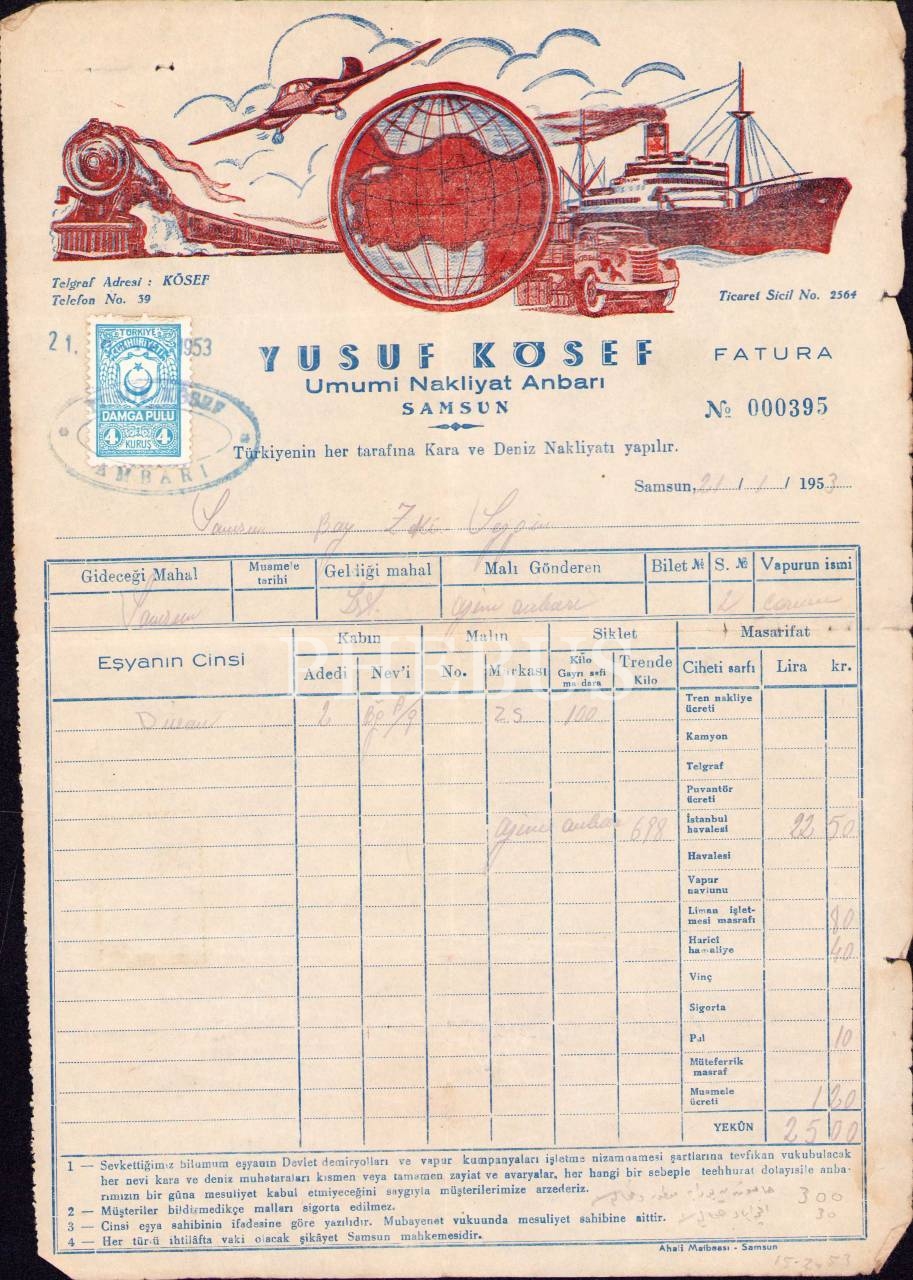 Telgraf Adresi : KÖSEF
Telefon No. 39
Ticaret Sicil No. 2564
21. 1953
TÜRKİYE
CUMHURİYETİ
DAMGA PULU
4 KURUŞ 4
AMBARI
YUSUF KÖSEF
FATURA
Umumi Nakliyat Anbarı
SAMSUN
№ 000395
Türkiyenin her tarafına Kara ve Deniz Nakliyatı yapılır.
Samsun, 21 / 1 / 1953
Samsun Bay Zeki
Gideceği Mahal Muamele tarihi Geldiği mahal Malı Gönderen Bilet № S. № Vapurun ismi
Samsun İst. anbarı 2
Eşyanın Cinsi Kabın Malın Siklet Masarifat
Adedi Nev'i No. Markası Kilo Gayrı safi maadara Trende Kilo Ciheti sarfı Lira kr.
PHEBUS
2 ZS 100 Tren nakliye ücreti
Kamyon
Telgraf
Puvantör ücreti
anbar 698 İstanbul havalesi 22 50
Havalesi
Vapur navlunu
Liman işletmesi masrafı 80
Harici hamaliye 40
Vinç
Sigorta
Pul 10
Müteferrik masraf
Muamele ücreti 1 20
YEKÛN 25 00
1 — Sevkettiğimiz bilumum eşyanın Devlet demiryolları ve vapur kumpanyaları işletme nizamnamesi şartlarına tevfikan vukubulacak
her nevi kara ve deniz muhataraları kısmen veya tamamen zayiat ve avaryalar, her hangi bir sebeple teehhurat dolayısile anba-
rımızın bir gûna mesuliyet kabul etmiyeceğini saygıyla müşterilerimize arzederiz.
2 — Müşteriler bildirmedikçe malları sigorta edilmez.
3 — Cinsi eşya sahibinin ifadesine göre yazılıdır. Mubayenet vukuunda mesuliyet sahibine aittir.
4 — Her türlü ihtilâfta vaki olacak şikâyet Samsun mahkemesidir.
300
30
Ahali Matbaası - Samsun
15-2-53